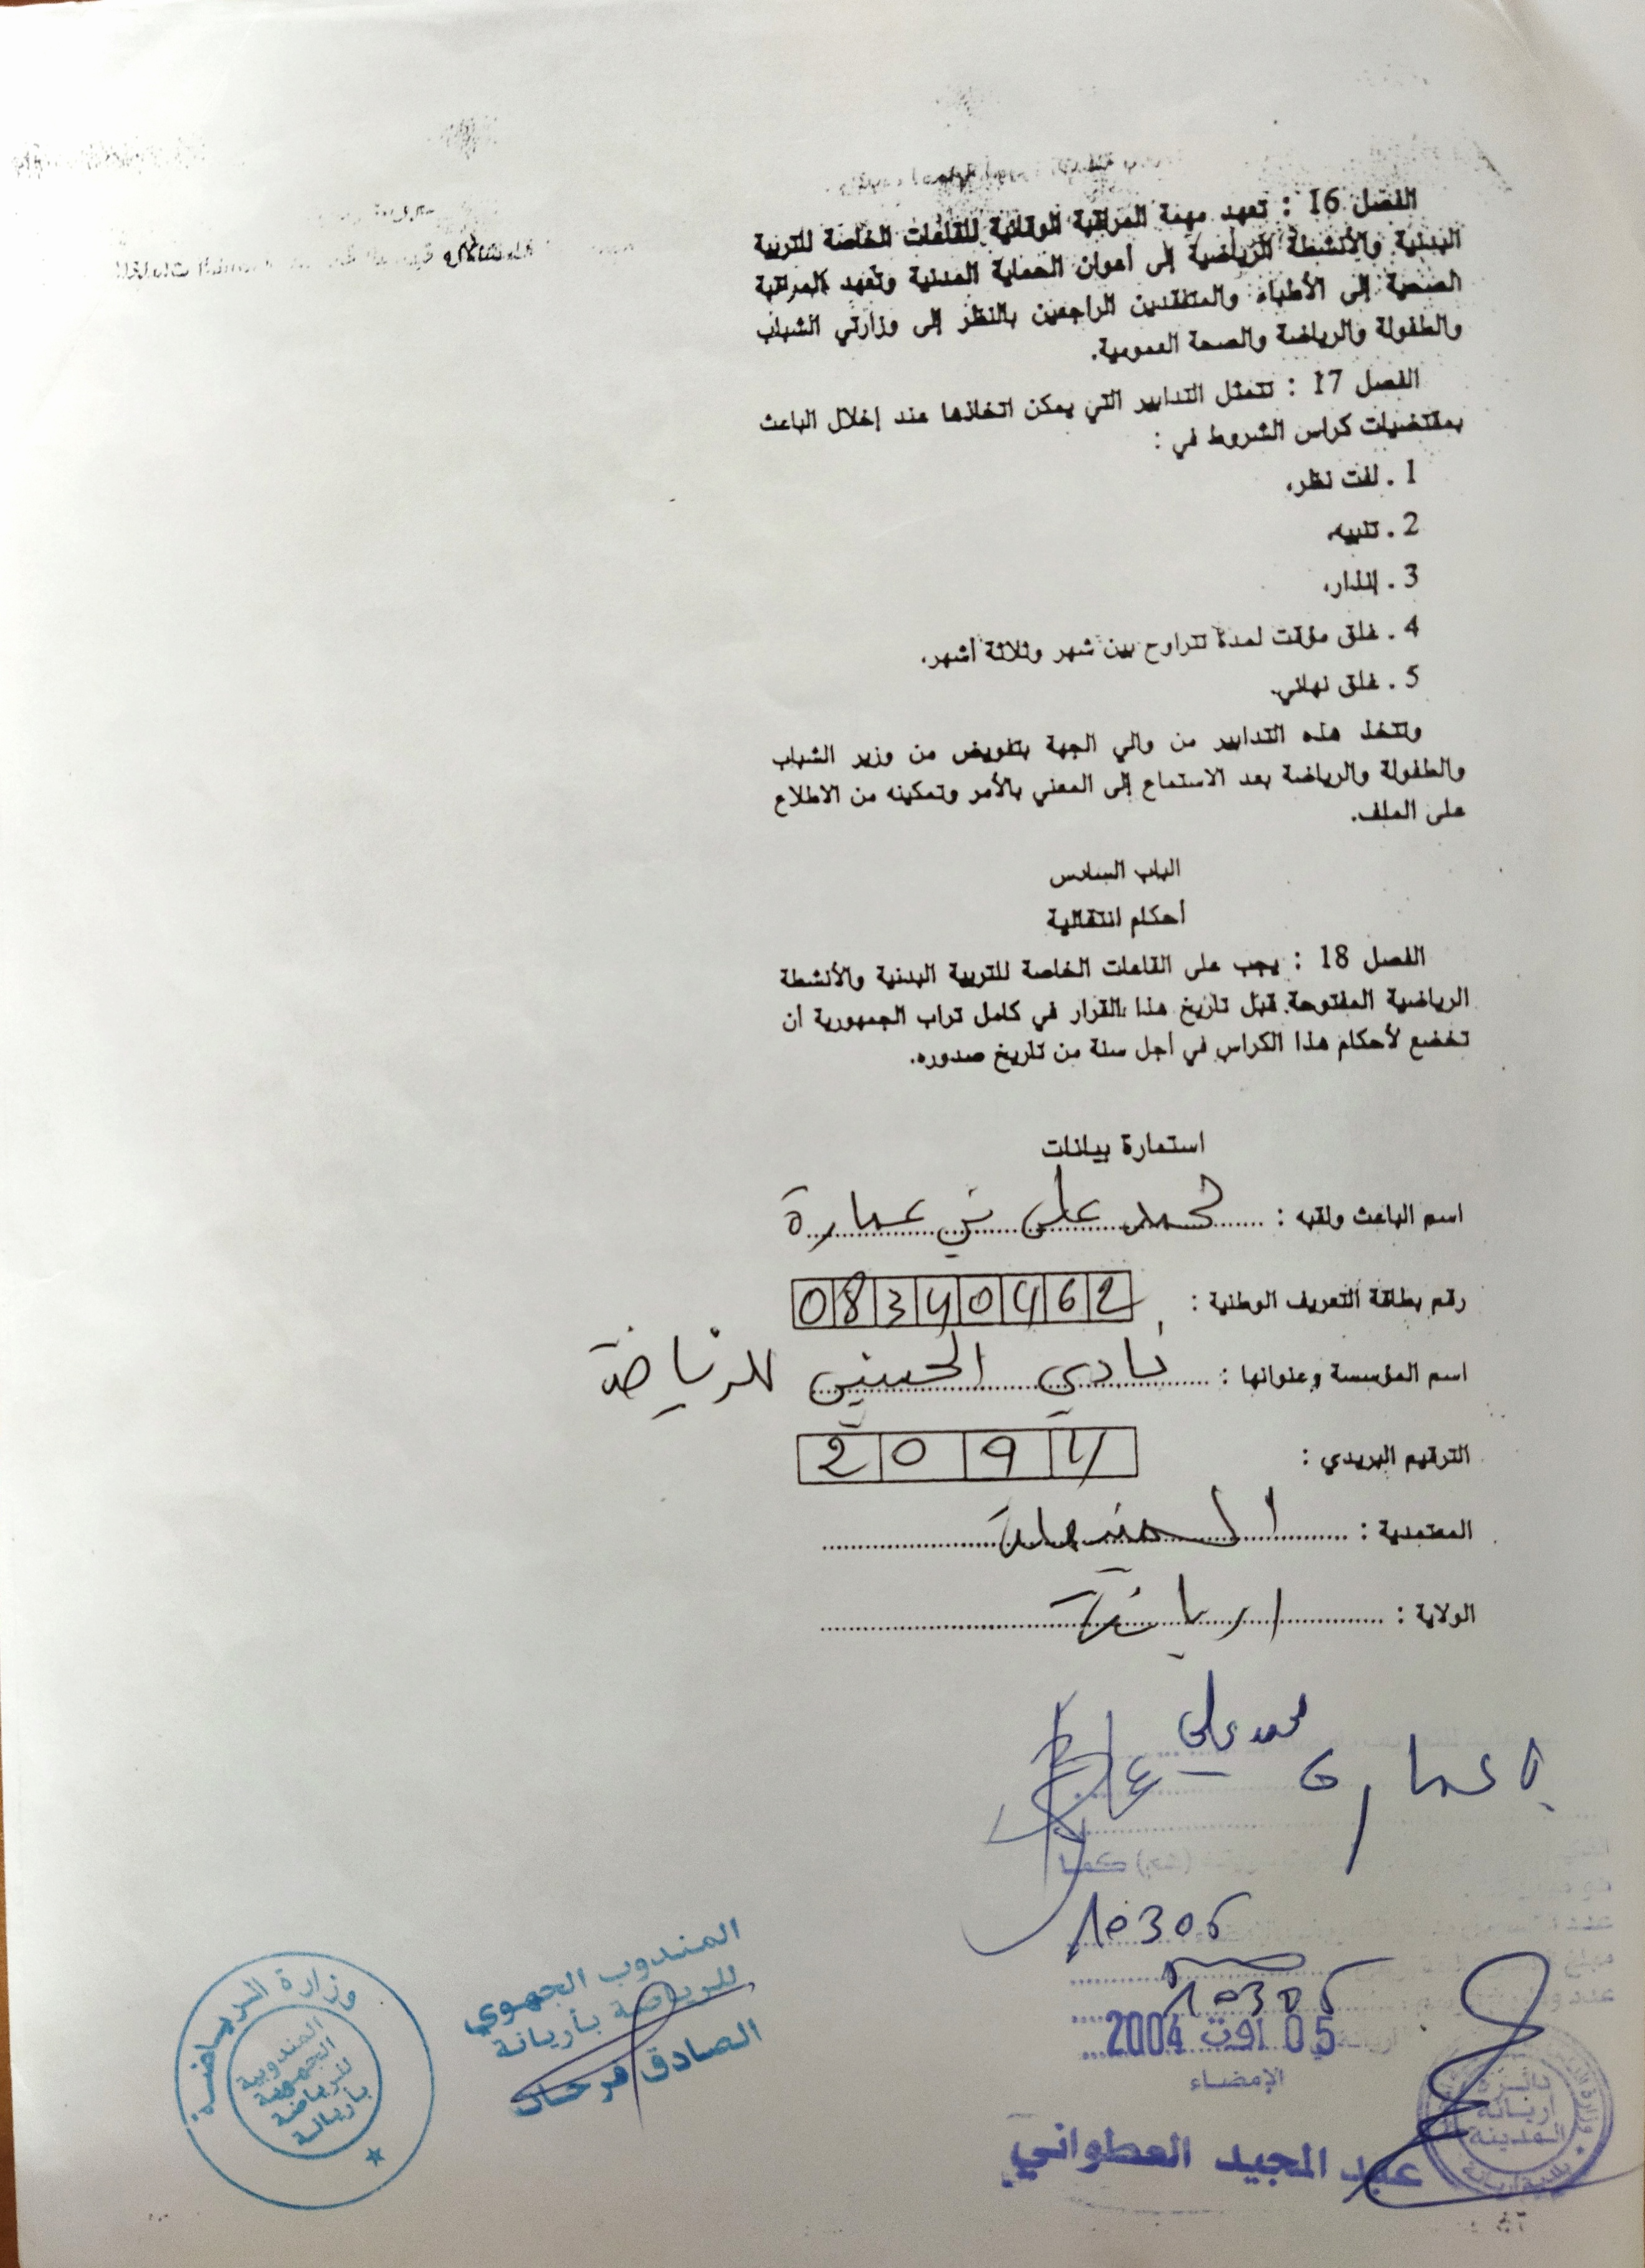 الفصل 16 : تعهد مهمة المراقبة الوقائية للقاعات الخاصة للتربية
البدنية والأنشطة الرياضية إلى أعوان الحماية المدنية وتعهد المراقبة
الصحية إلى الأطباء والمتفقدين الراجعين بالنظر إلى وزارتي الشباب
والطفولة والرياضة والصحة العمومية.
الفصل 17 : تتمثل التدابير التي يمكن اتخاذها عند إخلال الباعث
بمقتضيات كراس الشروط في :
1 . لفت نظر،
2 . تنبيه،
3 . إنذار،
4 . غلق مؤقت لمدة تتراوح بين شهر وثلاثة أشهر،
5 . غلق نهائي.
وتتخذ هذه التدابير من والي الجهة بتفويض من وزير الشباب
والطفولة والرياضة بعد الاستماع إلى المعني بالأمر وتمكينه من الاطلاع
على الملف.
الباب السادس
أحكام انتقالية
الفصل 18 : يجب على القاعات الخاصة للتربية البدنية والأنشطة
الرياضية المفتوحة قبل تاريخ هذا القرار في كامل تراب الجمهورية أن
تخضع لأحكام هذا الكراس في أجل سنة من تاريخ صدوره.
استمارة بيانات
اسم الباعث ولقبه : محمد علي بن عمارة
رقم بطاقة التعريف الوطنية : 08340462
اسم المؤسسة وعنوانها : نادي الحسني للرياضة
الترقيم البريدي : 2094
المعتمدية : المنيهلة
الولاية : اريانة
محمد علي
بن عمارة
10305
10305
05 اوت 2004
الإمضاء
عبد المجيد العطواني
دائرة
أريانة
المدينة
بلدية أريانة
المندوب الجهوي
للرياضة بأريانة
الصادق فرحات
وزارة الرياضة
المندوبية
الجهوية
للرياضة
بأريانة